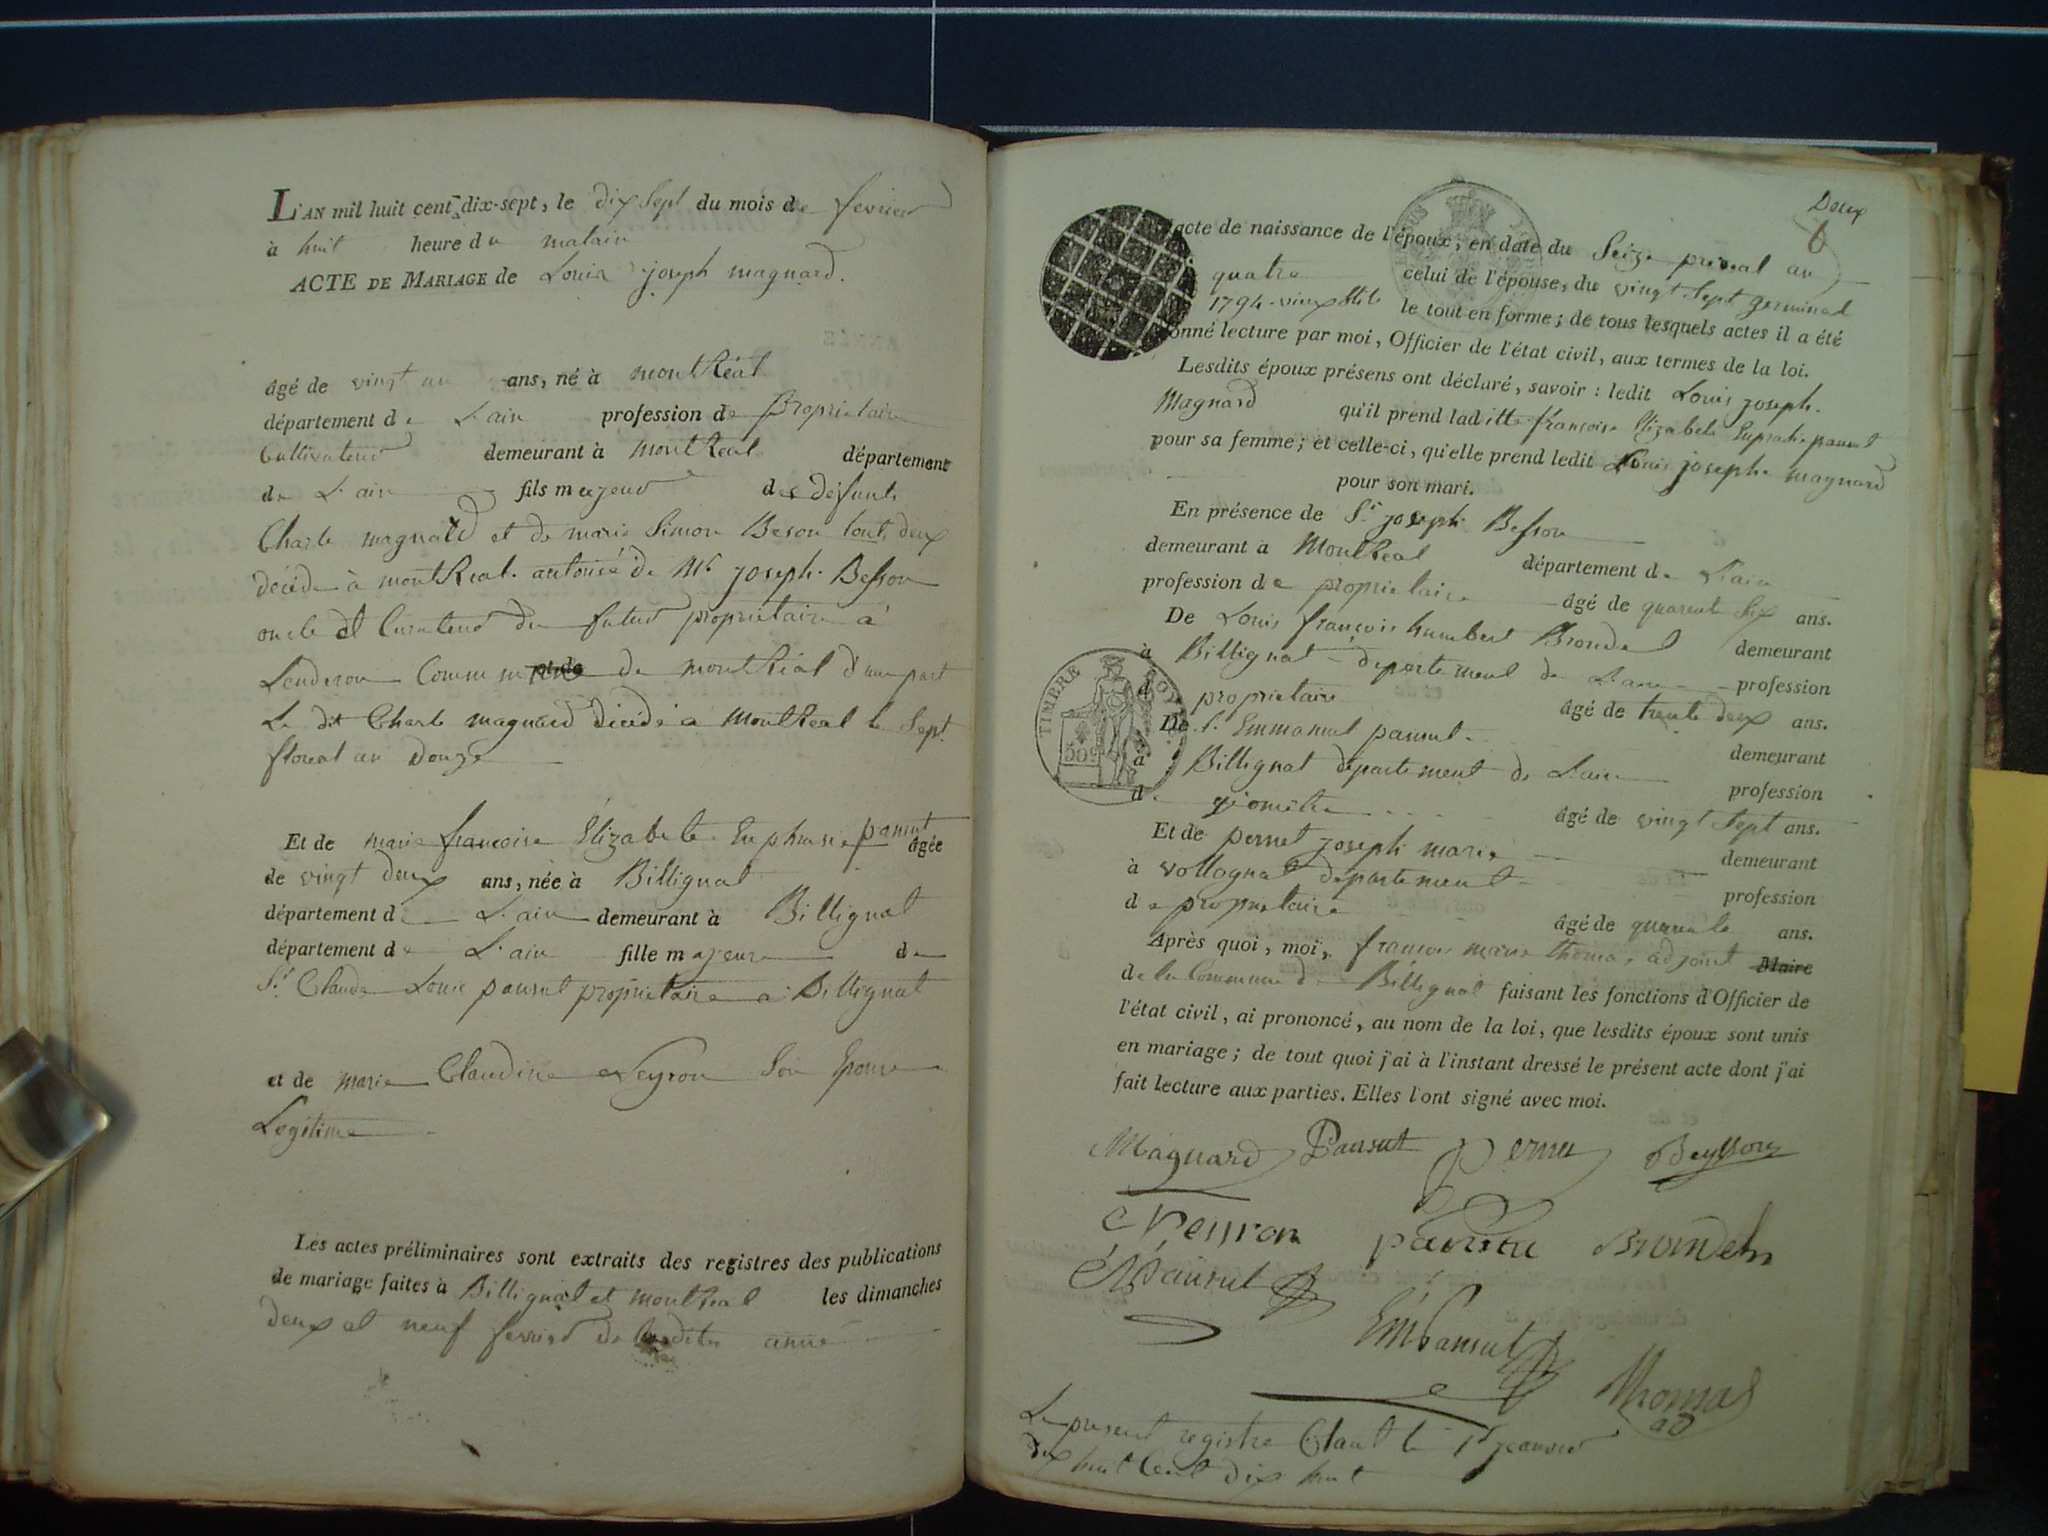 L'AN mil huit cent dix-sept, le dix Sept du mois de fevrier
à huit heure du matain
ACTE DE MARIAGE de Louis joseph magnard.
âgé de vingt un ans, né à montRéal
département de L'ain profession de Proprietaire
Cultivateur demeurant à montReal département
de L'ain fils majeur des défunts
Charle magnard et de marie Simon Beson tout deux
décédé à montReal. autorisé de Mr joseph Besson
oncle et Curateur du futur proprietaire à
Landeron Commune de montRéal d'une part
Le dit Charle magnard décédé a MontReal le Sept
floreal an Douze
Et de marie françoise Elizabete Euphrasie pansut âgée
de vingt deux ans, née à Billignat
département de L'ain demeurant à Billignat
département de L'ain fille majeure de
Sr. Claude Louis pansut proprietaire a Billignat
et de marie Claudine Neyron Son Epouse
Legitime
Les actes préliminaires sont extraits des registres des publications
de mariage faites à Billignat et montReal les dimanches
deux et neuf fevrier de ladite anné
Deux
6
l'acte de naissance de l'époux, en date du Seize prereal an
quatre celui de l'épouse, du vingt Sept germinal
1794 vieux stile le tout en forme; de tous lesquels actes il a été
donné lecture par moi, Officier de l'état civil, aux termes de la loi.
Lesdits époux présens ont déclaré, savoir : ledit Louis joseph
Magnard qu'il prend laditte françoise Elizabete Euprasie pansut
pour sa femme; et celle-ci, qu'elle prend ledit Louis joseph magnard
pour son mari.
En présence de Sr. joseph Besson
demeurant à MontReal département de L'ain
profession de proprietaire âgé de quarente Six ans.
De Louis françois humbert Brondel demeurant
à Billignat departement de L'ain profession
de proprietaire âgé de trente deux ans.
De Sr. Emmanuel pansut
à Billignat departement de L'ain demeurant
de géomêtre profession
âgé de vingt Sept ans.
Et de pernet joseph marie demeurant
à vollognat departement profession
de proprietaire âgé de quarente ans.
Après quoi, moi, françois marie thomas adjoint Maire
de la Commune de Billignat faisant les fonctions d'Officier de
l'état civil, ai prononcé, au nom de la loi, que lesdits époux sont unis
en mariage; de tout quoi j'ai à l'instant dressé le présent acte dont j'ai
fait lecture aux parties. Elles l'ont signé avec moi.
Magnard Pansut Pernet Beysson
Neyron pansut Brondel
Pansut
Em Pansut
Thomas
ad
Le present registre Claut le 1er janvier
dix huit Cent dix huit
TIMBRE ROYAL
50c